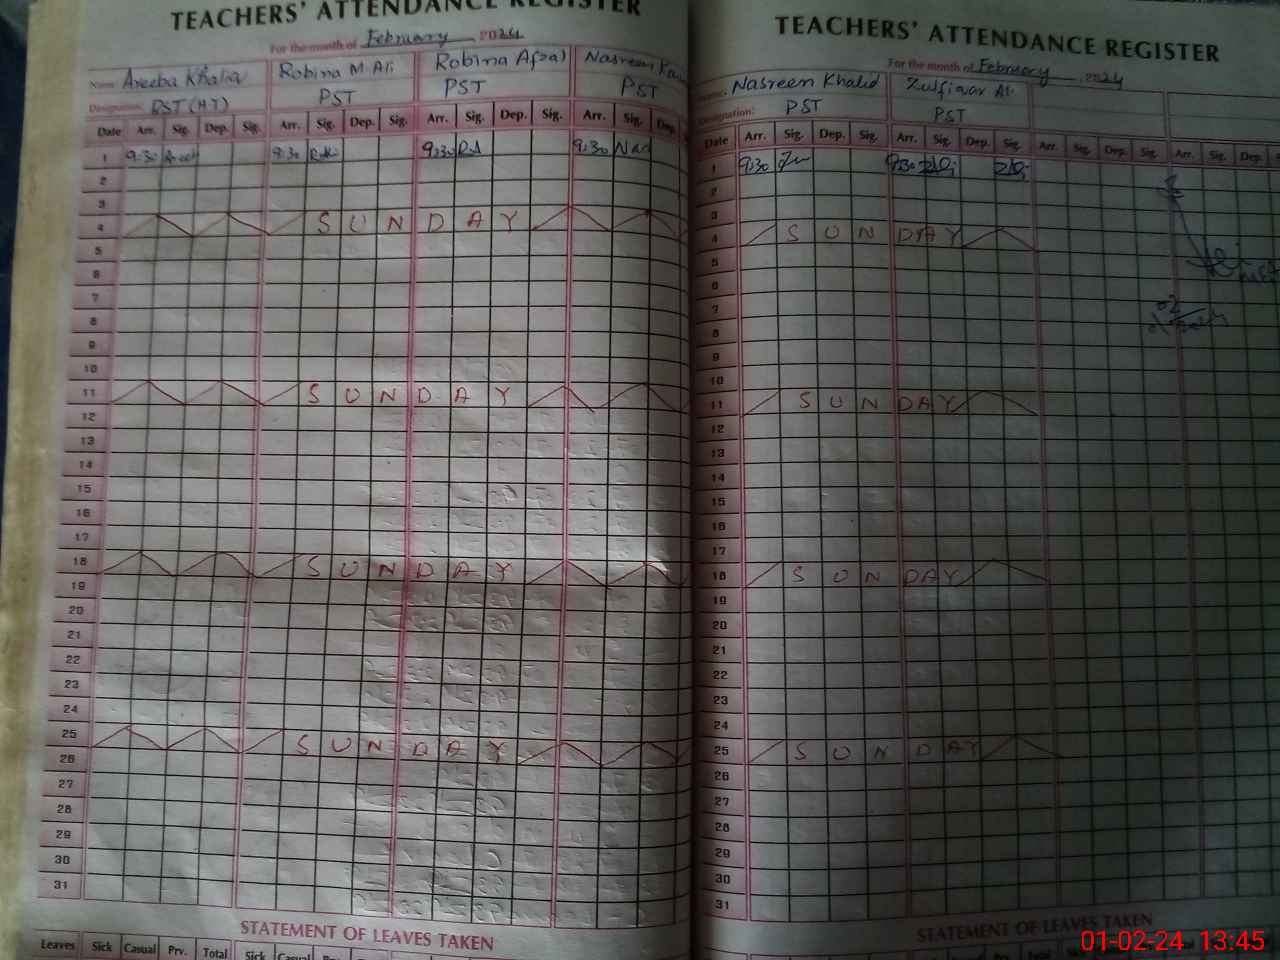 TEACHERS' ATTENDANCE REGISTER
For the month of February 2024
Name Areeba Khalid Robina M Ali Robina Afzal Nasreen
Designation: PST PST PST
Date Arr. Sig. Dep. Sig. Arr. Sig. Dep. Sig. Arr. Sig. Dep. Sig. Arr. Sig. Dep.
1 9:30 9:30 9:30 9:30
2
3
4 SUNDAY
5
6
7
8
9
10
11 SUNDAY
12
13
14
15
16
17
18 SUNDAY
19
20
21
22
23
24
25 SUNDAY
26
27
28
29
30
31
STATEMENT OF LEAVES TAKEN
Leaves Sick Casual Prv. Total Sick Casual Prv.
TEACHERS' ATTENDANCE REGISTER
For the month of February 2024
Nasreen Khalid Zulfiqar Ali
Designation: PST PST
Date Arr. Sig. Dep. Sig. Arr. Sig. Dep. Sig. Arr. Sig. Dep. Sig. Arr. Sig. Dep.
1 9:30 9:30
2
3
4 SUNDAY
5
6
7
8
9
10
11 SUNDAY
12
13
14
15
16
17
18 SUNDAY
19
20
21
22
23
24
25 SUNDAY
26
27
28
29
30
31
STATEMENT OF LEAVES TAKEN
01-02-24 13:45